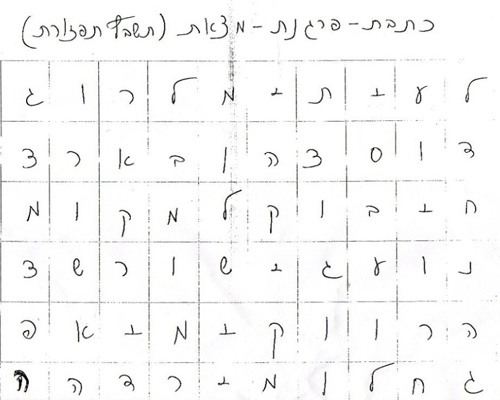 כתבת-פרגנת-מצאת (תשבץ תפזורת)
ל ע י ת י מ ל ר ו ג
ד ו ס צ ה ו ב א ר צ
ח י ב ו ק ל מ ק ו מ
נ ו ע ג י ש ו ר ש צ
ה ר ו ו ק י מ י א פ
ג ח ל ו מ י ר ד ה ה